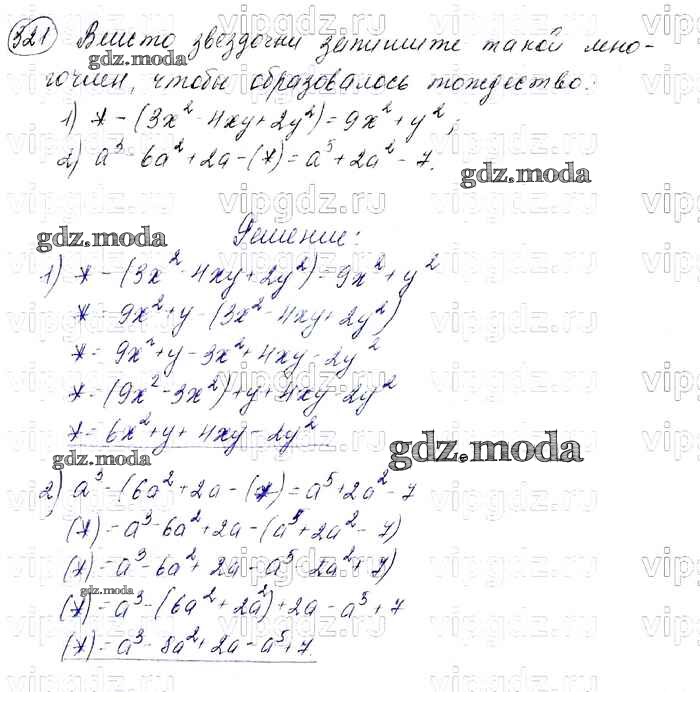 321 Вместо звездочки запишите такой мно-
гочлен, чтобы образовалось тождество:
1) * - (3x² - 4xy + 2y²) = 9x² + y²;
2) a³ - 6a² + 2a - (*) = a⁵ + 2a² - 7.
gdz.moda
Решение:
1) * - (3x² - 4xy + 2y²) = 9x² + y²
* = 9x² + y - (3x² - 4xy + 2y²)
* = 9x² + y - 3x² + 4xy - 2y²
* = (9x² - 3x²) + y + 4xy - 2y²
* = 6x² + y + 4xy - 2y²
gdz.moda
2) a³ - (6a² + 2a - (*) = a⁵ + 2a² - 7
(*) = a³ - 6a² + 2a - (a⁵ + 2a² - 7)
(*) = a³ - 6a² + 2a - a⁵ - 2a² + 7)
(*) = a³ - (6a² + 2a²) + 2a - a⁵ + 7
(*) = a³ - 8a² + 2a - a⁵ + 7.
gdz.moda
vipgdz.ru